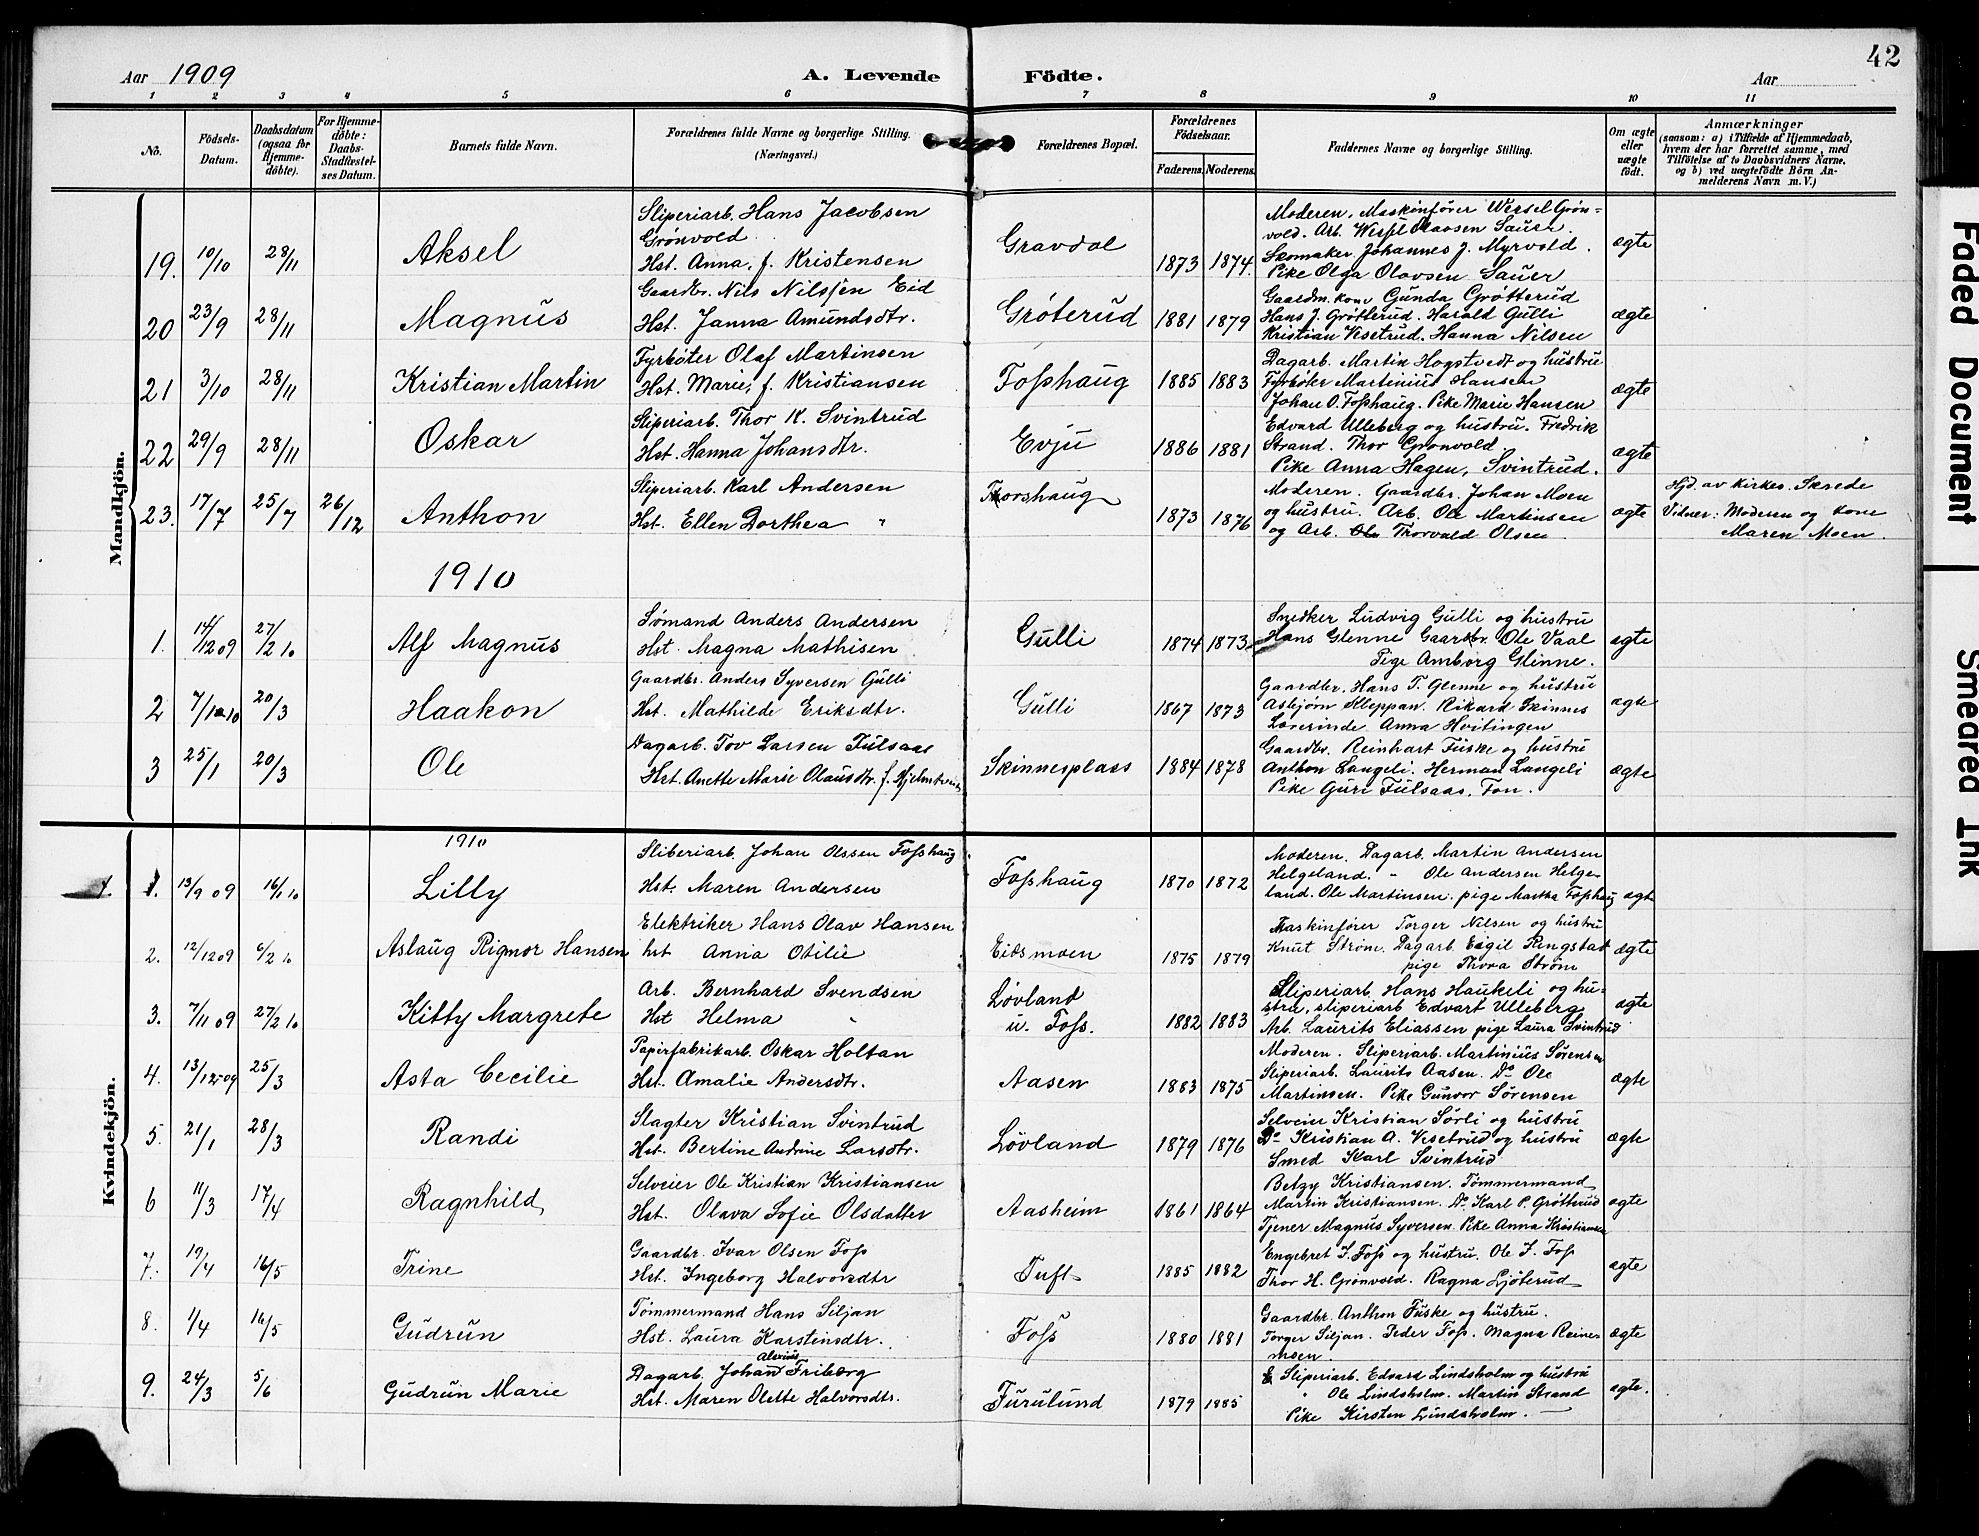 42
Aar 1909 A. Levende Födte. Aar
1 2 3 4 5 6 7 8 9 10 11
No.
Födsels-Datum.
Daabsdatum (ogsaa for Hjemme-döbte).
For Hjemme-döbte: Daabs-Stadfæstel-ses Datum.
Barnets fulde Navn.
Forældrenes fulde Navne og borgerlige Stilling.
(Næringsvei.)
Forældrenes Bopæl.
Forældrenes Födselsaar.
Faderens. Moderens.
Faddernes Navne og borgerlige Stilling.
Om ægte eller uægte födt.
Anmærkninger
(saasom: a) i Tilfælde af Hjemmedaab,
hvem der har forrettet samme, med
Tilföielse af to Daabsvidners Navne,
og b) ved uægtefödte Börn An-
melderens Navn m. V.)
Mandkjön.
19. 10/10 28/11 Aksel
Sliperiarb. Hans Jacobsen
Grönvold
Hst. Anna, f. Kristensen
Gravdal 1873 1874.
Moderen, Maskinförer Wersel Grön-
vold. Arb. Olaosen Sauer.
Skomaker Johannes J. Myrvold.
Pike Olga Olavsen Sauer
ægte
20 23/9 28/11 Magnus
Gaardbr. Nils Nilssen Eid
Hst. Janna Amundsdtr.
Gröterud 1881 1879
Gaardm. kone Gunda Grötterud
Hans J. Grötterud. Harald Gulli
Kristian Vesetrud. Hanna Nilsen
ægte
21 3/10 28/11 Kristian Martin
Fyrböter Olaf Martinsen
Hst. Marie, f. Kristiansen
Fosshaug 1885 1883
Dagarb. Martin Hogstvedt og hustru
Fyrböter Martinius Hansen
Johan O. Fosshaug. Pike Marie Hansen
ægte
22 29/9 28/11 Oskar
Sliperiarb. Thor K. Svintrud
Hst. Hanna Johansdtr.
Evju 1886 1881
Edvard Ulleberg og hustru. Fredrik
Strand. Thor Grönvold
Pike Anna Hagen, Svintrud.
ægte
23. 17/7 25/7 26/12 Anthon
Sliperiarb. Karl Andersen
Hst. Ellen Dorthea "
Thorshaug 1873 1876
Moderen. Gaardbr. Johan Moen
og hustru. Arb. Ole Martinsen
og Arb. Ole Thorvald Olsen
ægte
Hjd. av kirkes. Skrede
Vidner: Moderen og kone
Maren Moen.
1910
1. 14/12 09 27/2 10 Alf Magnus
Sömand Anders Andersen
Hst. Magna Mathisen
Gulli 1874 1873
Snedker Ludvig Gulli og hustru
Hans Glenne Gaardbr. Ole Vaal
Pige Amborg Glinne.
ægte
2 20/3 Haakon
Gaardbr. Anders Syversen Gulli
Hst. Mathilde Eriksdtr.
Gulli 1867 1873
Gaardbr. Hans T. Glenne og hustru
Asbjörn Kleppan. Rikard Skinnes
Lærerinde Anna Hvitingen
ægte
3 25/1 20/3 Ole
Dagarb. Tov Larsen Fulsaas
Hst. Anette Marie Olausdtr. f.
Skinnesplass 1884 1878
Gaardbr. Reinhart Fuske og hustru
Anthon Langeli. Herman Langeli
Pike Guri Fulsaas, Ton.
ægte
Kvindekjön.
1910
1. 13/9 09 16/1 10 Lilly
Sliberiarb. Johan Olssen Fosshaug
Hst. Maren Andersen
Fosshaug 1870 1872
Moderen. Dagarb. Martin Andersen
Helgeland. " Ole Andersen Helge-
land. Ole Martinsen. pige Martha Fosshaug
ægte
2. 12/12 09 6/2 10 Aslaug Rigmor Hansen
Elektriker Hans Olav Hansen
hst Anna Otilie
Eidsmoen 1875 1879
Maskinförer Torger Nilsen og hustru
Knut Ström. Dagarb. Eigil Ringstad
pige Thora Ström
ægte
3. 7/11 09 27/2 10 Kitty Margrete
Arb. Bernhard Svendsen
Hst Helma "
Lövland
u. Foss. 1882 1883
Sliperiarb. Hans Haukeli og hu-
stru, sliperiarb Edvart Ulleberg
Arb. Laurits Eliassen pige Laura Svintrud
ægte
4. 13/12 09 25/3 Asta Cecilie
Papirfabrikarb. Oskar Holtan
Hst. Amalie Andersdtr.
Aasen 1883 1875
Moderen. Sliperiarb. Martinius Sörensen
Sliperiarb. Laurits Aasen. Do Ole
Martinsen. Pike Gunvor Sörensen
ægte
5. 21/1 28/3 Randi
Slagter Kristian Svintrud
Hst. Bertine Andrine Larsdtr.
Lövland 1879 1876
Selveier Kristian Sörli og hustru
Do Kristian A. Vesetrud og hustru
Smed Karl Svintrud
ægte
6 11/3 17/4 Ragnhild
Selveier Ole Kristian Kristiansen
Hst. Olava Sofie Olsdatter
Aasheim 1861 1864
Betzy Kristiansen. Tömmermand
Martin Kristiansen. Do Karl P. Grötterud
Tjener Magnus Syversen. Pike Anna Kristiansen
ægte
7. 19/4 16/5 Trine
Gaardbr. Ivar Olsen Foss
Hst. Ingeborg Halvorsdtr
Tuft 1885 1882
Engebret I. Foss og hustru. Ole I. Foss
Thor H. Grönvold. Ragna Ljöterud
ægte
8. 1/4 16/5 Gudrun
Tömmermand Hans Siljan
Hst. Laura Karstensdtr.
Foss 1880 1881
Gaardbr. Anthon Fuske og hustru.
Torger Siljan. Peder Foss. Magna Reine-
moen.
ægte
9. 24/3 5/6 Gudrun Marie
Alexius
Dagarb. Johan Friberg
Hst. Maren Olette Halvorsdtr.
Furulund 1879 1885
Sliperiarb. Edvard Lindsholm og hustru
" Ole Lindsholm. Martin Strand
Pike Kirsten Lindsholm.
ægte.
Faded Document
Smeared Ink